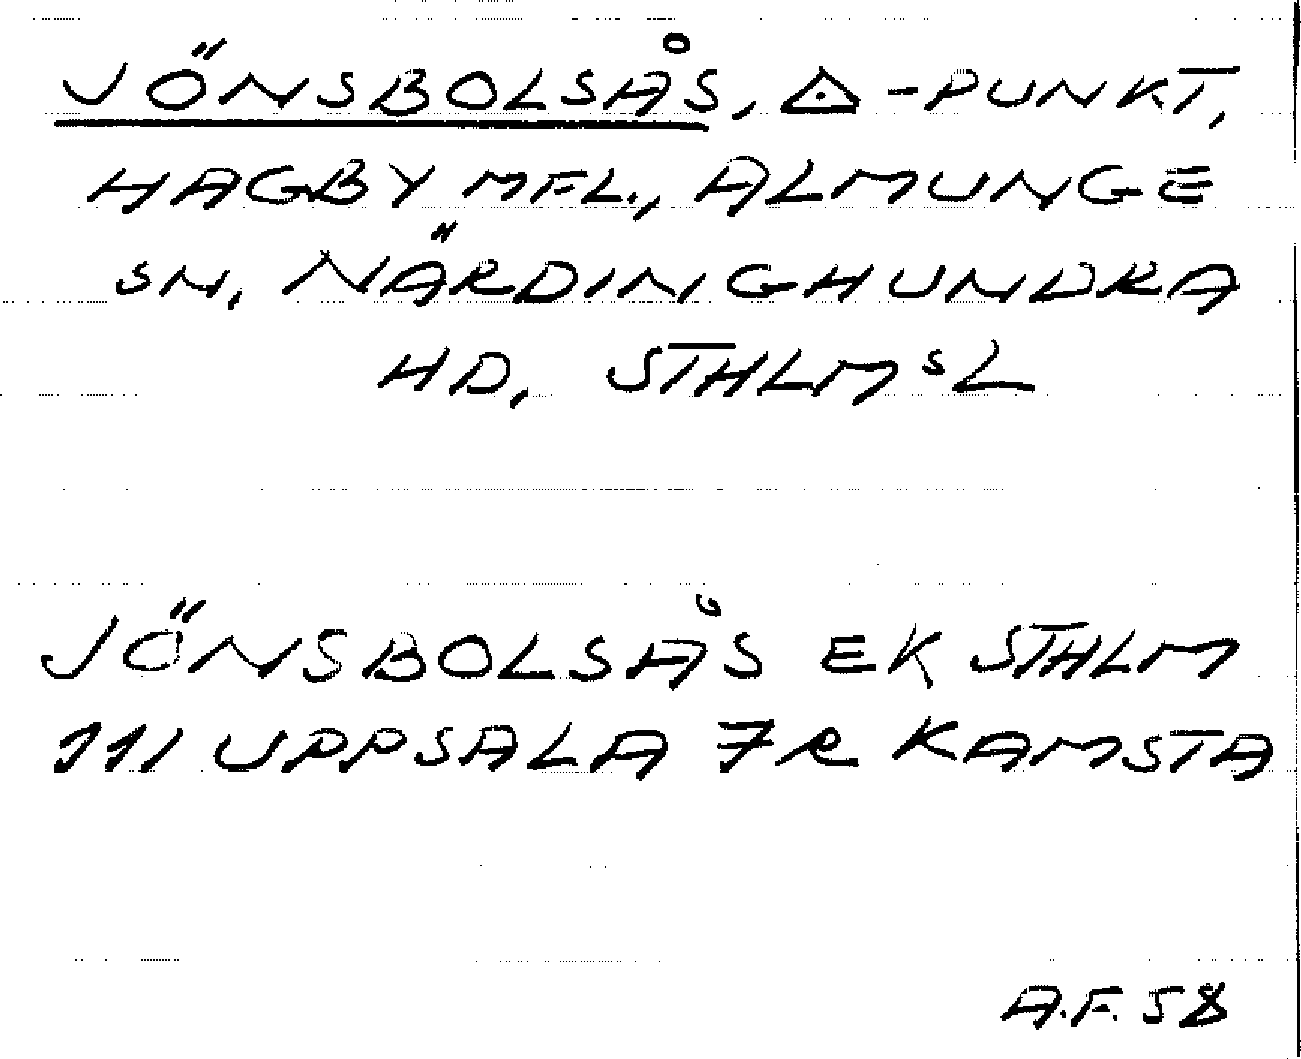 JÖNSBOLSÅS, △-PUNKT,
HAGBY MFL., ALMUNGE
SN, NÄRDINGHUNDRA
HD, STHLMSL
JÖNSBOLSÅS EK STHLM
111 UPPSALA 7R KAMSTA
A.F. 58